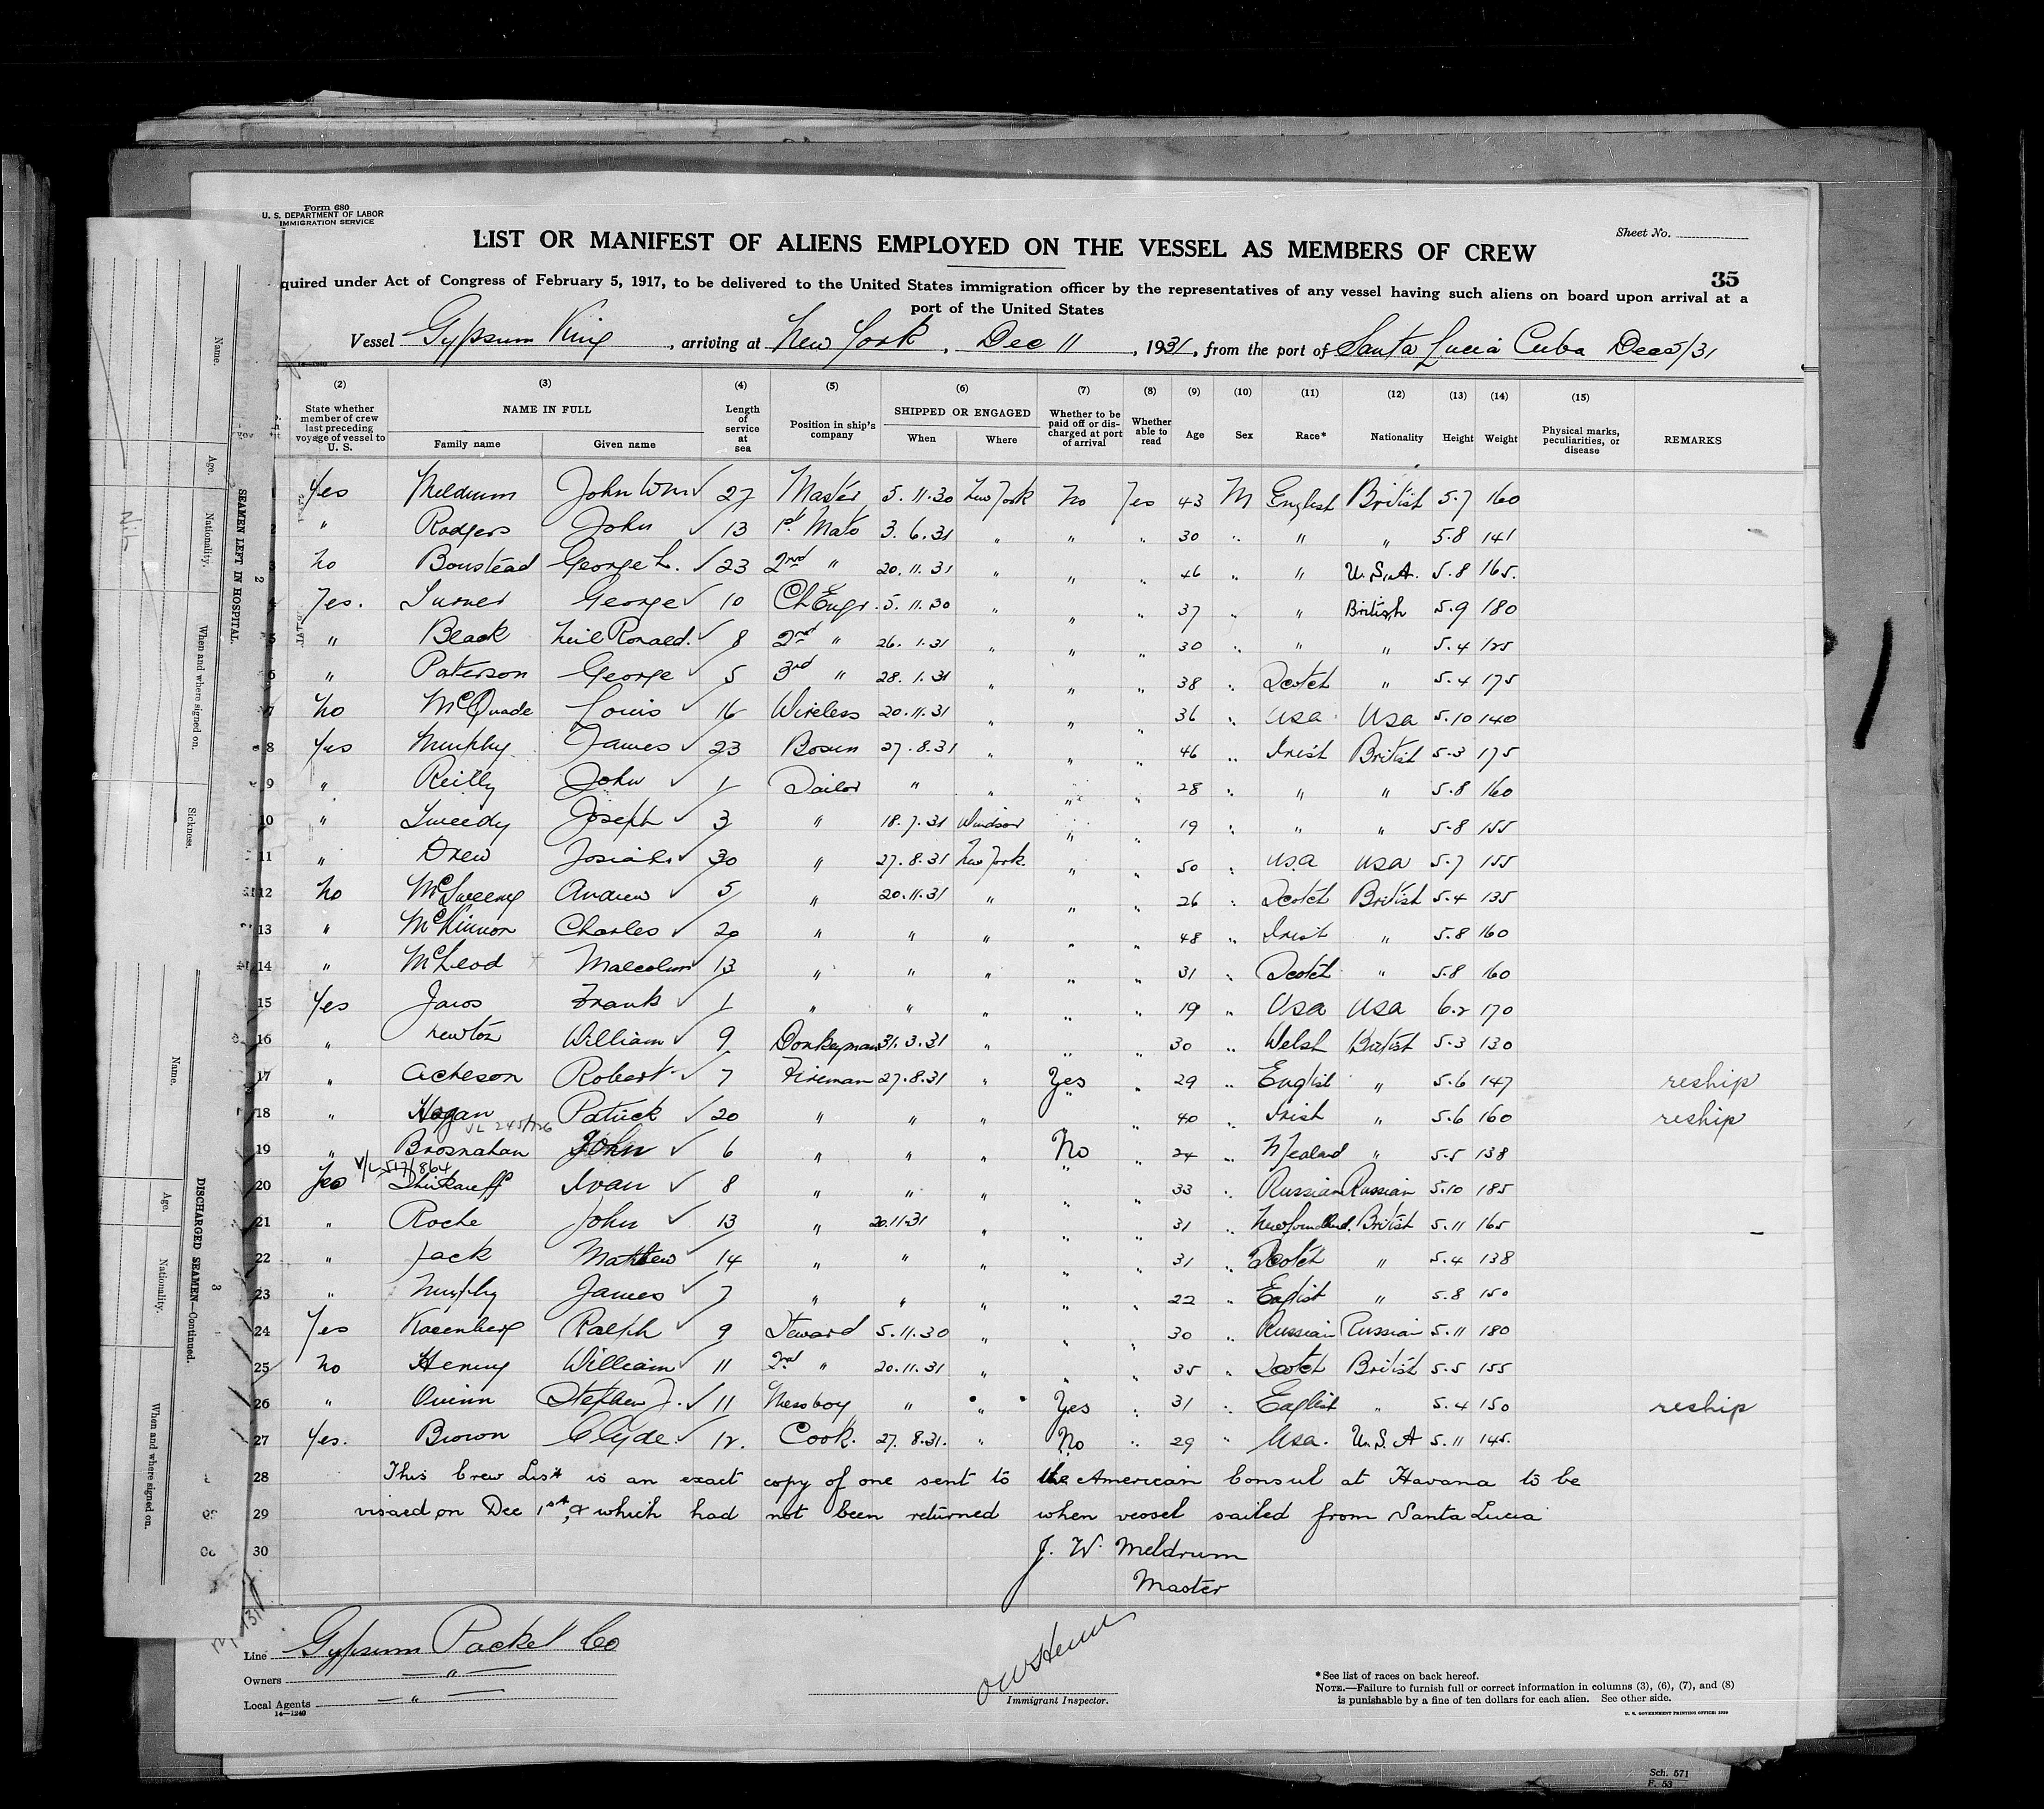 Form 680
U. S. DEPARTMENT OF LABOR
IMMIGRATION SERVICE
Sheet No.
LIST OR MANIFEST OF ALIENS EMPLOYED ON THE VESSEL AS MEMBERS OF CREW
35
quired under Act of Congress of February 5, 1917, to be delivered to the United States immigration officer by the representatives of any vessel having such aliens on board upon arrival at a
port of the United States
Vessel Gypsum King, arriving at New York, Dec 11, 1931, from the port of Santa Lucia Cuba Dec 5/31
(2) (3) (4) (5) (6) (7) (8) (9) (10) (11) (12) (13) (14) (15)
State whether member of crew last preceding voyage of vessel to U. S. NAME IN FULL Family name Given name Length of service at sea Position in ship's company SHIPPED OR ENGAGED When Where Whether to be paid off or discharged at port of arrival Whether able to read Age Sex Race* Nationality Height Weight Physical marks, peculiarities, or disease REMARKS
1 Yes Meldrum John Wm ✓ 27 Master 5.11.30 New York No Yes 43 M English British 5.7 160
2 " Rodgers John ✓ 13 1st Mate 3.6.31 " " " 30 " " " 5.8 141
3 No Boustead George L. ✓ 23 2nd " 20.11.31 " " " 46 " " U.S.A. 5.8 165.
4 Yes. Turner George ✓ 10 Ch Engr. 5.11.30 " " " 37 " " British 5.9 180
5 " Black Neil Ronald. ✓ 8 2nd " 26.1.31 " " " 30 " " " 5.4 125
6 " Paterson George ✓ 5 3rd " 28.1.31 " " " 38 " Scotch " 5.4 175
7 No McQuade Louis ✓ 16 Wireless 20.11.31 " " " 36 " USA USA 5.10 140
8 Yes Murphy James ✓ 23 Bosun 27.8.31 " " " 46 " Irish British 5.3 175
9 " Reilly John ✓ 1 Sailor " " " " 28 " " " 5.8 160
10 " Tweedy Joseph ✓ 3 " 18.7.31 Windsor " " 19 " " " 5.8 155
11 " Drew Josiah ✓ 30 " 27.8.31 New York " " 50 " USA USA 5.7 155
12 No McSweeny Andrew ✓ 5 " 20.11.31 " " " 26 " Scotch British 5.4 135
13 " McKinnon Charles ✓ 20 " " " " " 48 " Irish " 5.8 160
14 " McLeod Malcolm ✓ 13 " " " " " 31 " Scotch " 5.8 160
15 Yes Jaros Frank ✓ 1 " " " " " 19 " USA USA 6.2 170
16 " Newton William ✓ 9 Donkeyman 31.3.31 " " " 30 " Welsh British 5.3 130
17 " Acheson Robert ✓ 7 Fireman 27.8.31 " Yes " 29 " English " 5.6 147 reship
18 " Hogan Patrick ✓ 20 " " " " " 40 " Irish " 5.6 160 reship
19 " Brosnahan John ✓ 6 " " " No " 24 " N Zealand " 5.5 138
V/L 517/864
20 Yes Ivan ✓ 8 " " " " " 33 " Russian Russian 5.10 185
21 " Roche John ✓ 13 " 20.11.31 " " " 31 " Newfoundland. British 5.11 165
22 " Jack Mathew ✓ 14 " " " " " 31 " Scotch " 5.4 138
23 " Murphy James ✓ 7 " " " " " 22 " English " 5.8 150
24 Yes Rosenberg Ralph ✓ 9 Steward 5.11.30 " " " 30 " Russian Russian 5.11 180
25 No Henny William ✓ 11 2nd " 20.11.31 " " " 35 " Scotch British 5.5 155
26 " Quinn Stephen J. ✓ 11 Messboy " " Yes " 31 " English " 5.4 150 reship
27 Yes. Brown Clyde ✓ 12. Cook. 27.8.31. " No " 29 " USA. U.S.A 5.11 145.
28 This Crew List is an exact copy of one sent to the American Consul at Havana to be
29 visaed on Dec 1st, & which had not been returned when vessel sailed from Santa Lucia
30 J. W. Meldrum
Master
Line Gypsum Packet Co
Owners — " —
Local Agents — " —
14—1240
Immigrant Inspector.
*See list of races on back hereof.
NOTE.—Failure to furnish full or correct information in columns (3), (6), (7), and (8)
is punishable by a fine of ten dollars for each alien. See other side.
U. S. GOVERNMENT PRINTING OFFICE: 1930
Sch. 571
F. 53
SEAMEN LEFT IN HOSPITAL.
2
Name.
Age.
Nationality.
When and where signed on.
Sickness.
Nil
DISCHARGED SEAMEN—Continued.
3
Name.
Age.
Nationality.
When and where signed on.